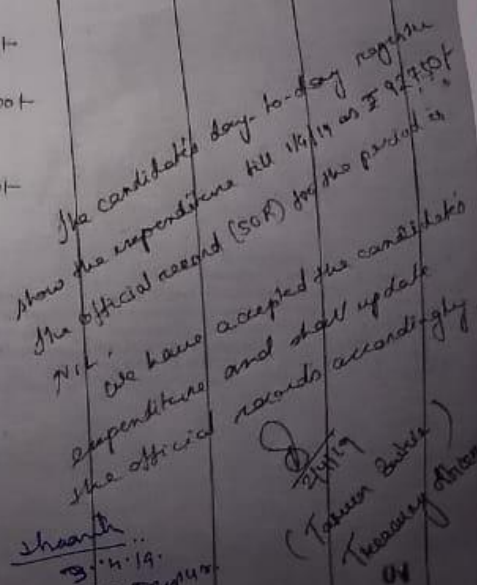 The candidate's day-to-day register
show the expenditure till 1/4/19 as ₹ 92,750/-
The official record (SOR) for the period is
NIL.
We have accepted the candidate's
expenditure and shall update
the official records accordingly
2/4/19
Treasury
3.4.19.